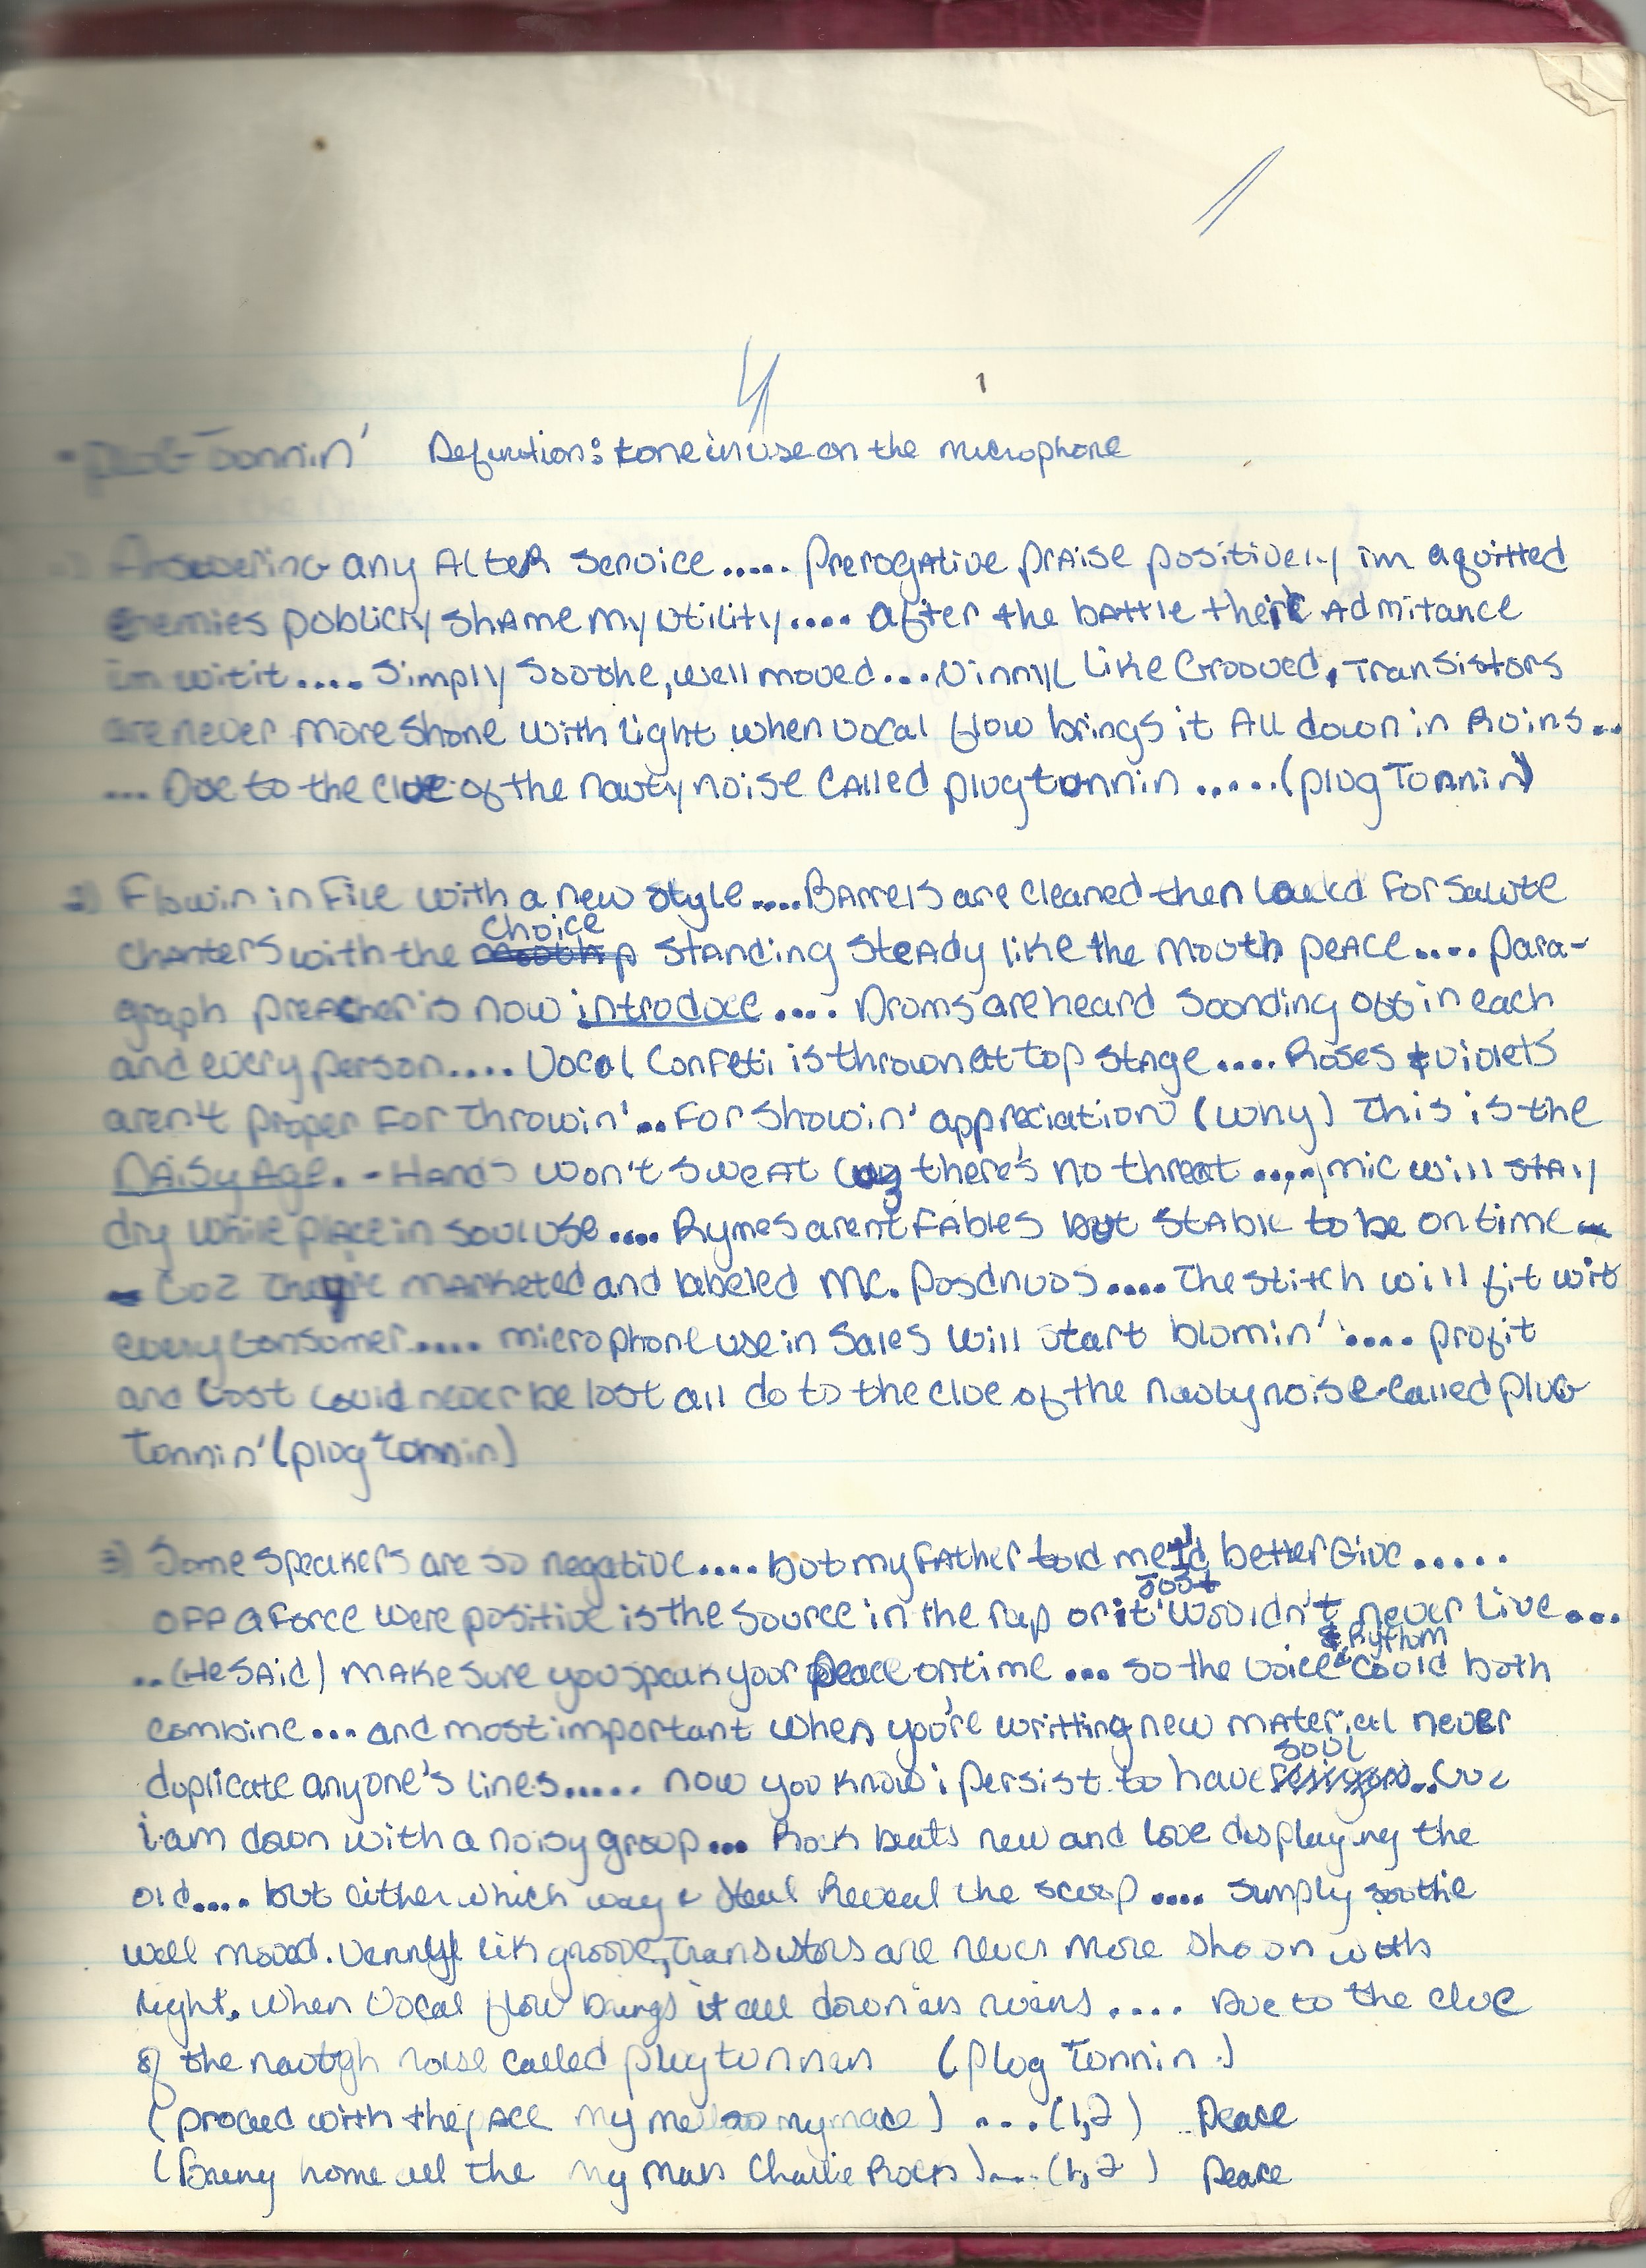 4 1
- Plug Tonnin' Defenition: tone in use on the microphone
1) Answering any Alter service..... Prerogative praise positively im aquitted
enemies publicly shame my utility.... after the battle their Admitance
im witit.... Simply Soothe, well moved... Vinmyl Like Grooved, Transistors
are never more shone with light when vocal flow brings it All down in Ruins...
... Due to the clue of the nauty noise called plug tonnin .....(plug Tonnin)
2) Flowin in File with a new style....Barrels are cleaned then loaded For Salute
choice
chanters with the standing steady like the mouth peace.... para-
graph preacher is now introduce.... Drums are heard sounding off in each
and every person.... Vocal Confeti is thrown at top stage.... Roses & violets
aren't proper For Throwin'... For showin' appreciation (why) This is the
Daisy Age. - Hands won't sweat cuz there's no threat .... mic will stay
dry while place in soul use.... Rymes arent Fables but stable to be on time
Coz they're marketed and labeled Mc. Posdnuos.... The stitch will fit wit
every consumer..... microphone use in sales will start blomin'.... profit
and Cost could never be lost all do to the clue of the nauty noise called plug
Tonnin' (plug tonnin)
3) Some speakers are so negative.... but my Father told me I'd better Give .....
Just
off a force were positive is the source in the rap or it wouldn't never Live...
& Rythum
..(He Said) make sure you speak your peace on time ... so the voice could both
combine... and most important when you're writting new material never
soul
duplicate anyone's lines..... now you know i persist to have ..Cuz
i am down with a noisy group... Rock beats new and love displaying the
old.... but either which way I steal Reveal the scoop .... simply soothe
well moved. Vennyl lik groove, Transistors are never more shoon with
light. when Vocal flow brings it all down in ruins .... Due to the clue
of the nautgh noise called plug tunnen (Plug Tonnin)
(proceed with the pace My mello my mace) ...(1,2) Peace
(Bring home all the My man Charlie Rocks)...(1,2) Peace